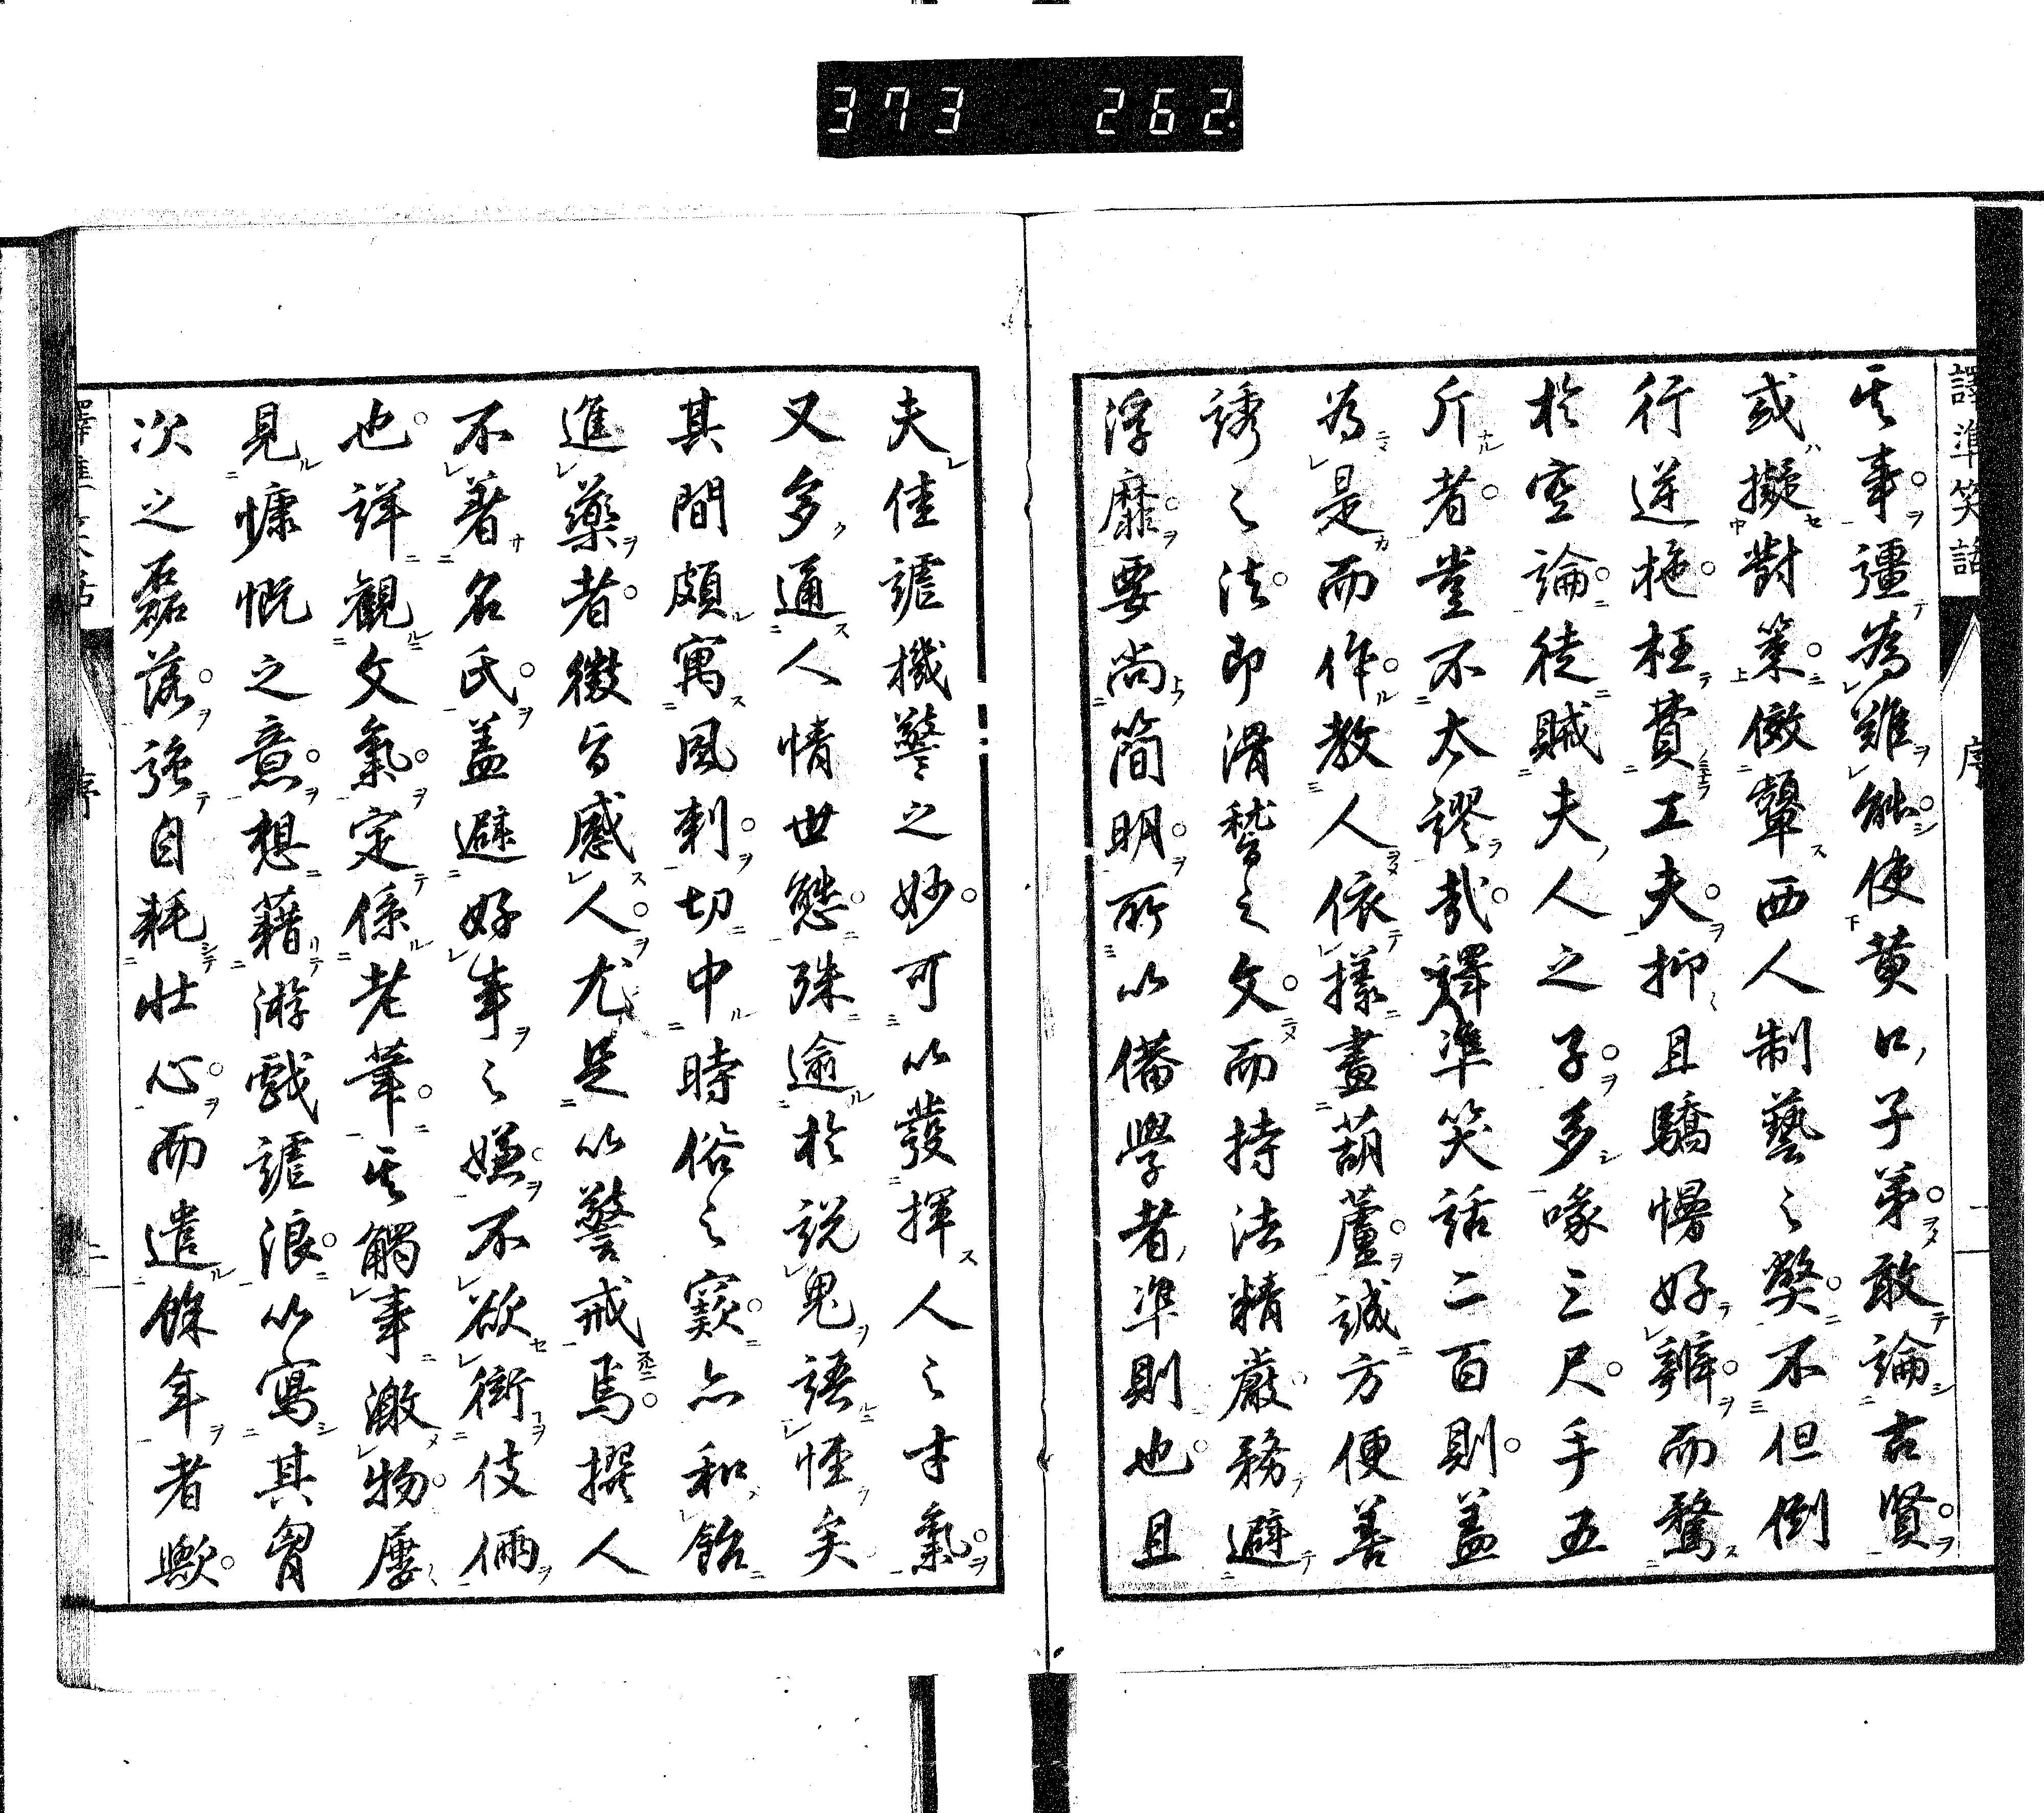 373 262.
譯準笑話 序 一
其事彊為難能使黄口子弟敢論古賢
或擬對策傚顰西人制藝之獘不但倒
行逆施枉費工夫抑且驕慢好辨而騖
於空論徒賊夫人之子多喙三尺手五
斤者豈不太謬哉譯準笑話二百則盖
為是而作教人依樣畫葫蘆誠方便善
誘之法即滑稽之文而持法精嚴務避
浮靡要尚簡明所以備學者準則也且
夫佳謔機警之妙可以發揮人之才氣
又多通人情世態殊逾於説鬼語怪矣
其間頗寓風刺切中時俗之窾亦和飴
進藥者微旨感人尤足以警戒焉撰人
不著名氏盖避好事之嫌不欲衒伎倆
也詳觀文氣定係老筆其觸事激物屢
見慷慨之意想藉游戯謔浪以寫其胷
次之磊落強自耗壮心而遣餘年者歟